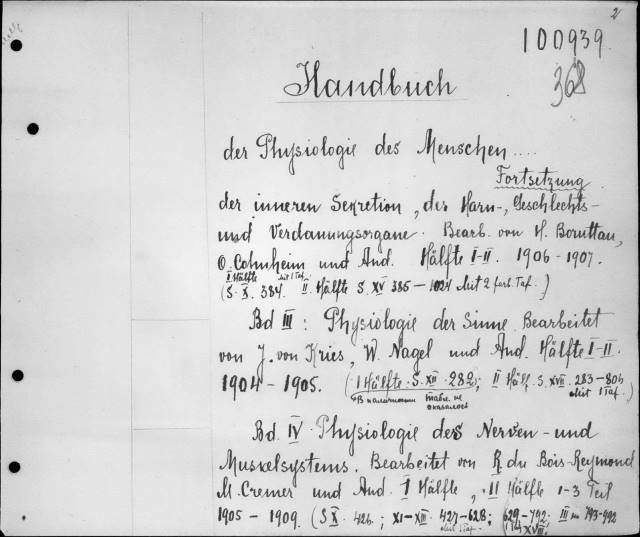 2
100939
368
Handbuch
der Physiologie des Menschen....
Fortsetzung
der inneren Sekretion, der Harn-, Geschlechts-
und Verdauungsorgane. Bearb. von H. Boruttau,
O. Cohnheim und And. Hälfte I-II. 1906-1907.
I Hälfte mit 1 Taf.
(S. X. 384. II. Hälfte S. XV 385-1024 Mit 2 farb. Taf.)
Bd III: Physiologie der Sinne. Bearbeitet
von J. von Kries, W. Nagel und And. Hälfte I-II.
1904-1905. (I Hälfte. S. XII. 282; II Hälf. S. XVII. 283-806
Mit 1 Taf.)
В наличности табл. не
оказалось
Bd. IV Physiologie des Nerven- und
Muskelsystems. Bearbeitet von R. du Bois-Reymond
M. Cremer und And. I Hälfte, II Hälfte 1-3 Teil
1905-1909. (S X. 426.; XI-XII. 427-628; 629-792; III 793-992
XVIII.